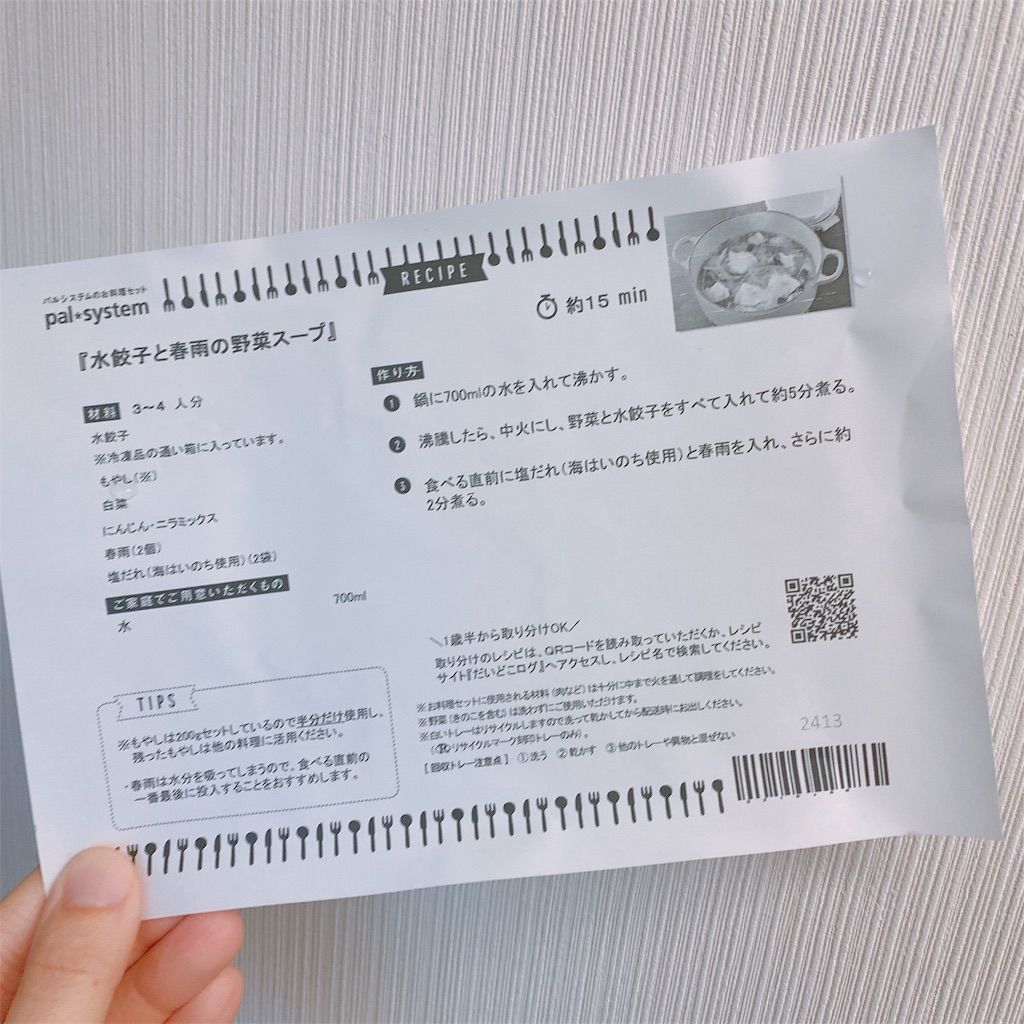 パルシステムのお料理セット
pal*system
RECIPE
約15 min
『水餃子と春雨の野菜スープ』
材料 3〜4 人分
水餃子
※冷凍品の通い箱に入っています。
もやし(※)
白菜
にんじん・ニラミックス
春雨(2個)
塩だれ(海はいのち使用)(2袋)
ご家庭でご用意いただくもの
水 700ml
作り方
1 鍋に700mlの水を入れて沸かす。
2 沸騰したら、中火にし、野菜と水餃子をすべて入れて約5分煮る。
3 食べる直前に塩だれ(海はいのち使用)と春雨を入れ、さらに約
2分煮る。
TIPS
※もやしは200gセットしているので半分だけ使用し、
残ったもやしは他の料理に活用ください。
・春雨は水分を吸ってしまうので、食べる直前の
一番最後に投入することをおすすめします。
\1歳半から取り分けOK/
取り分けのレシピは、QRコードを読み取っていただくか、レシピ
サイト『だいどこログ』へアクセスし、レシピ名で検索してください。
※お料理セットに使用される材料(肉など)は十分に中まで火を通して調理をしてください。
※野菜(きのこを含む)は洗わずにご使用いただけます。
※白いトレーはリサイクルしますので洗って乾かしてから配送時にお出しください。
(リサイクルマーク刻印トレーのみ)。
[回収トレー注意点] ①洗う ②乾かす ③他のトレーや異物と混ぜない
2413